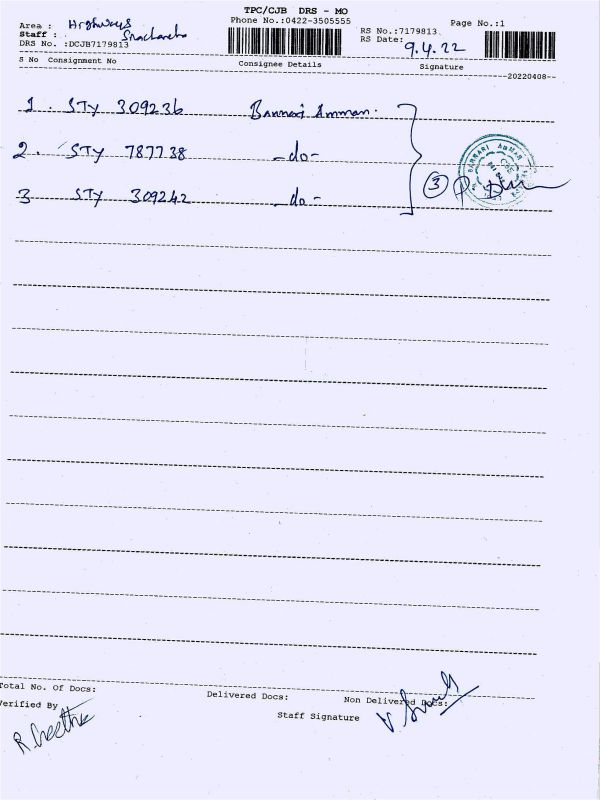 TPC/CJB DRS - MO
Area : Highways
Phone No.:0422-3505555
Page No.:1
Staff :
RS No.:7179813
DRS No. :DCJB7179813
RS Date: 9.4.22
S No Consignment No Consignee Details Signature
20220408
1. STY 309236 Bannari Amman.
2. STY 787738 -do-
3 STY 309242 -do-
3
BANNARI AMMAN
Total No. Of Docs: Delivered Docs: Non Delivered Docs:
Verified By
Staff Signature